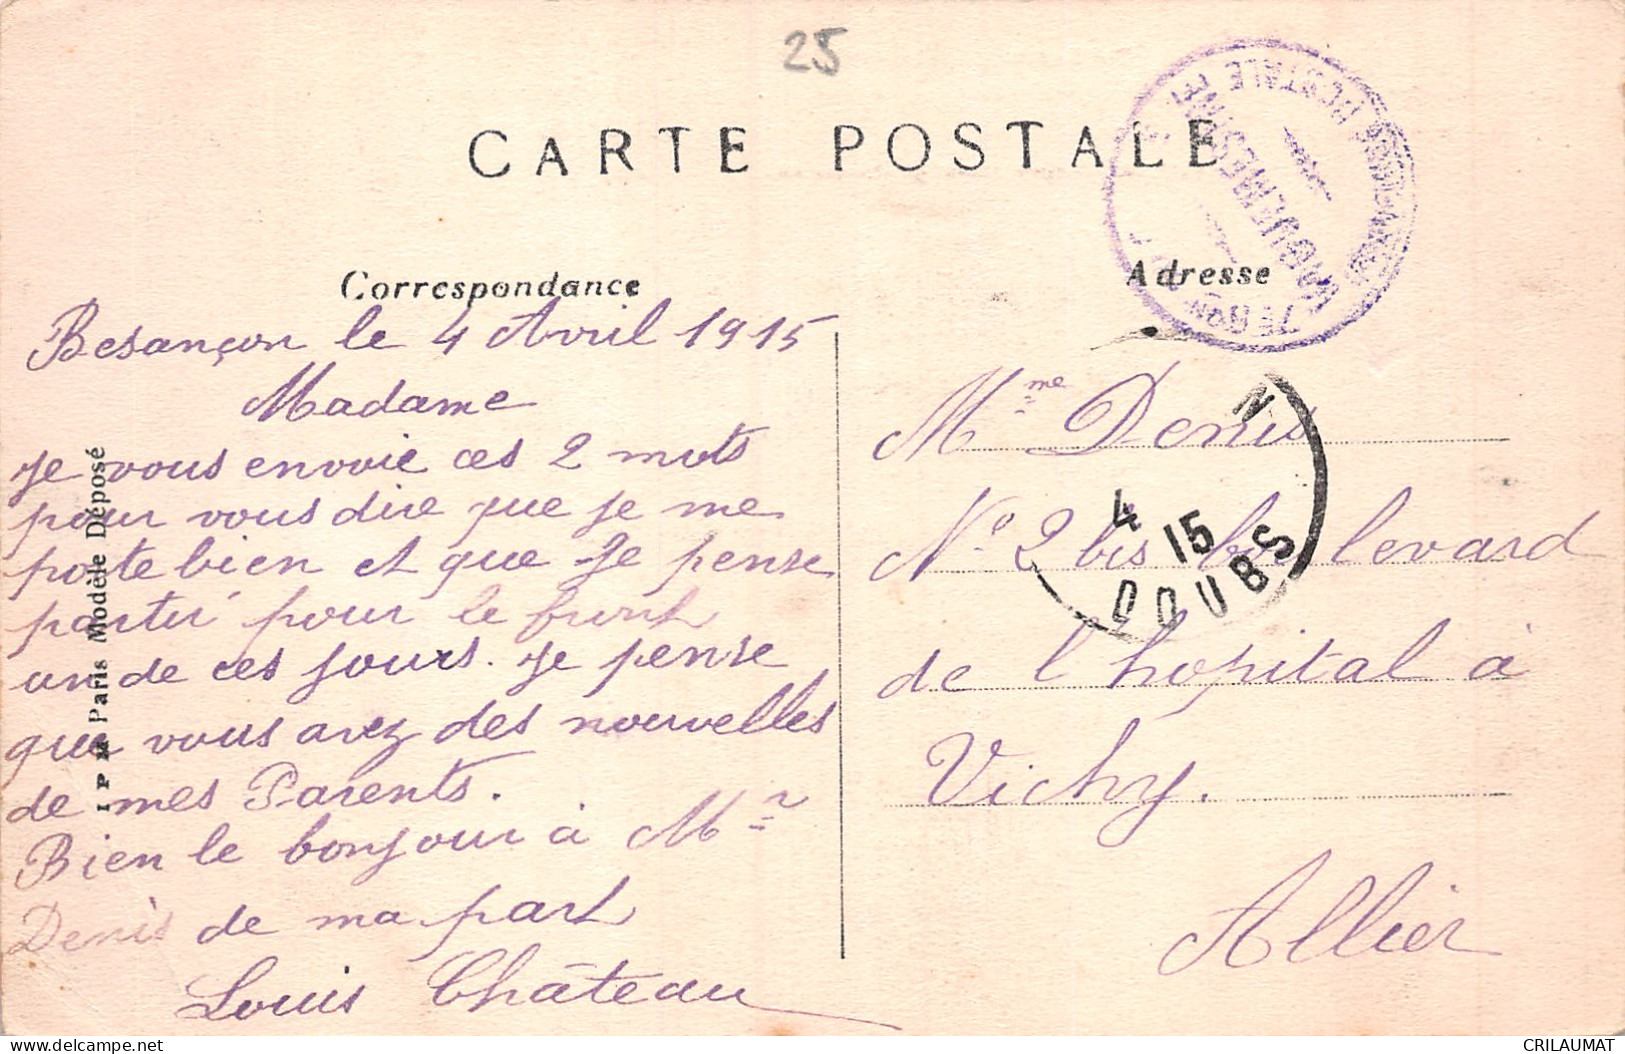 25
CARTE POSTALE
Correspondance
Adresse
Besançon le 4 Avril 1915
Madame
Je vous envoie ces 2 mots
pour vous dire que je me
porte bien et que Je pense
partir pour le front
un de ces jours. Je pense
que vous avez des nouvelles
de mes Parents.
Bien le bonjour à Mr
Denis de ma part
Louis Château
IPM Paris Modèle Déposé
Mme Denis
No 2 bis boulevard
de l'hopital à
Vichy.
Allier
POSTALE
N
4
15
DOUBS
delcampe.net
CRILAUMAT